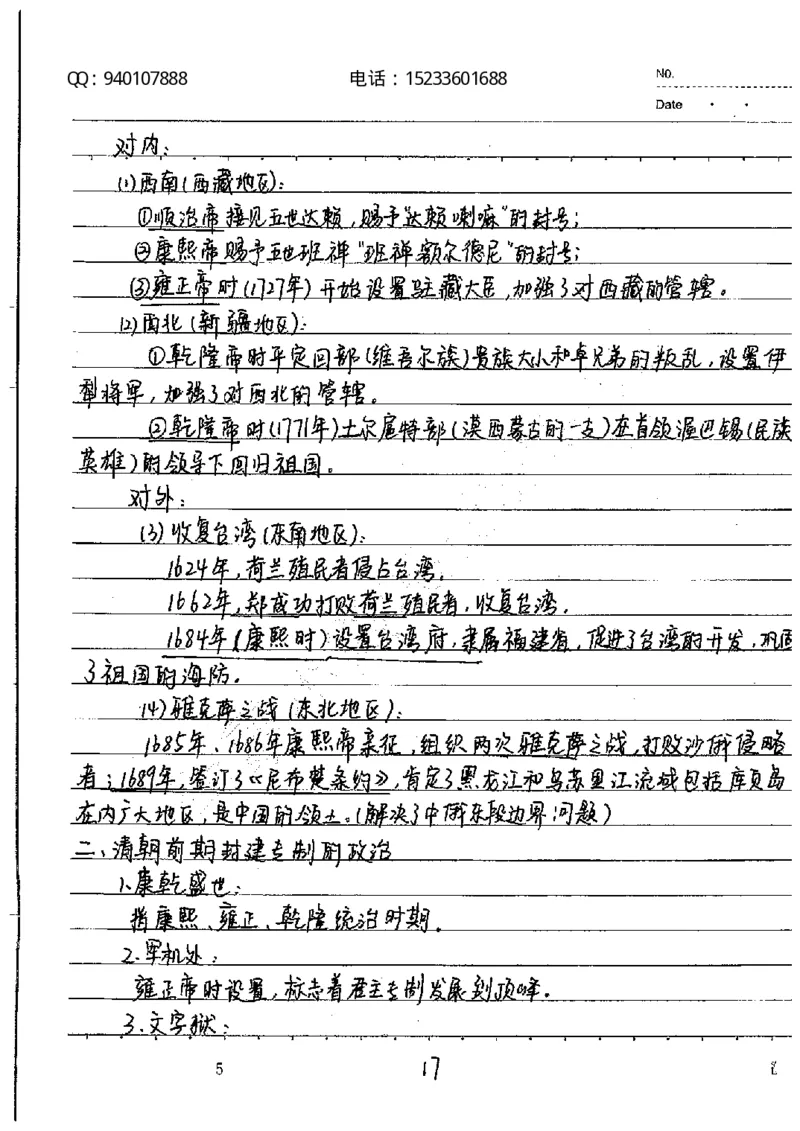 QQ：940107888 电话：15233601688 No.
Date
对内：
(1)西南(西藏地区)：
①顺治帝接见五世达赖，赐予"达赖喇嘛"的封号；
②康熙帝赐予五世班禅"班禅额尔德尼"的封号；
③雍正帝时(1727年)开始设置驻藏大臣，加强了对西藏的管辖。
(2)西北(新疆地区)：
①乾隆帝时平定回部(维吾尔族)贵族大小和卓兄弟的叛乱，设置伊
犁将军，加强了对西北的管辖。
②乾隆帝时(1771年)土尔扈特部(漠西蒙古的一支)在首领渥巴锡(民族
英雄)的领导下回归祖国。
对外：
(3)收复台湾(东南地区)：
1624年，荷兰殖民者侵占台湾。
1662年，郑成功打败荷兰殖民者，收复台湾。
1684年(康熙时)设置台湾府，隶属福建省，促进了台湾的开发，巩固
了祖国的海防。
(4)雅克萨之战(东北地区)：
1685年、1686年康熙帝亲征，组织两次雅克萨之战，打败沙俄侵略
者；1689年，签订了《尼布楚条约》，肯定了黑龙江和乌苏里江流域包括库页岛
在内广大地区，是中国的领土。(解决了中俄东段边界问题)
二、清朝前期封建专制的政治
1、康乾盛世：
指康熙、雍正、乾隆统治时期。
2.军机处：
雍正帝时设置，标志着君主专制发展到顶峰。
3.文字狱：
5 17